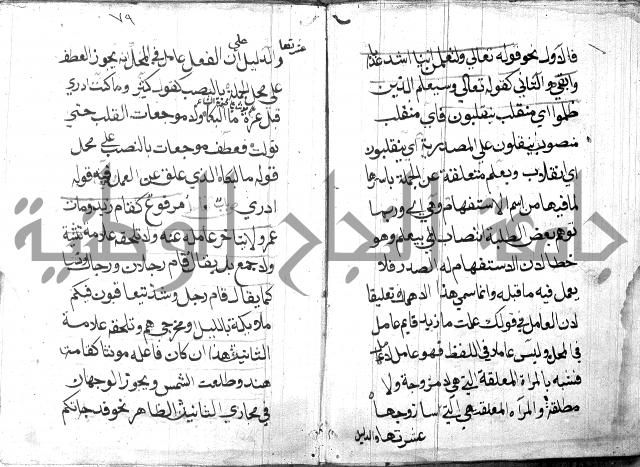 فالاول نحو قوله تعالي ولتعلمن اينا اشد عذابا
وابقي والثاني كقوله تعالي وسيعلم الذين
ظلموا اي منقلب ينقلبون فاي منقلب
منصوب بينقلبون علي المصدرية اي ينقلبون
اي انقلاب ويعلم متعلقة عن الجملة باسرها
لما فيها من اسم الاستفهام وهي اي وربما
توهم بعض الطلبة انتصاب اي بيعلم وهو
خطا لان الاستفهام له الصدر فلا
يعمل فيه ما قبله وانما سمي هذا الاهمال تعليقا
لان العامل في قولك علمت ما زيد قايم عامل
في المحل وليس عاملا في اللفظ فهو عامل لا عامل
فشبه بالمراة المعلقة التي هي لا مزوجة ولا
مطلقة والمراة المعلقة هي التي اسا زوجها
عشرتها والدليل
٧٩
عشرتها
والدليل علي ان الفعل عامل في المحل انه يجوز العطف
علي محل الجملة بالنصب كقول كثير وما كنت ادري
قبل عزة ما البكا ولا موجعات القلب حتي
تولت فعطف موجعات بالنصب علي محل
قوله ما البكا الذي علق عن العمل فيه قوله
ادري مرفوع كقام زيد ومات
عمرو ولا يتاخر عامله عنه ولا تلحقه علامة تثنية
ولا جمع بل يقال قام رجلان ورجال ونسا
كما يقال قام رجل وشذ يتعاقبون فيكم
ملايكة بالليل او مخرجي هم وتلحقه علامة
التانيث ان كان فاعله مونثا كقامت
هند وطلعت الشمس ويجوز الوجهان
في مجازي التانيث الظاهر نحو قد جاتكم
جامعة النجاح الوطنية